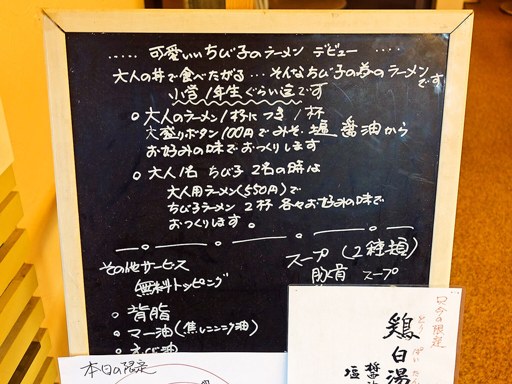 ····· 可愛いいちび子のラーメン デビュー ····
大人の丼で食べたがる…そんなちび子の為のラーメン
です
小学1年生ぐらい迄です
○ 大人のラーメン1杯につき1杯
大盛りボタン100円でみそ、塩 醤油から
お好みの味でおつくりします
○ 大人1名 ちび子2名の時は
大人用ラーメン(550円)で
ちび子ラーメン 2杯 各々お好みの味で
おつくりします。
その他サービス
無料トッピング
○ 背脂
○ マー油(焦しニンニク油)
○ えび油
スープ(2種類)
豚骨 スープ
本日の限定
限定
鶏白湯
とり ぱい たん
醤油
塩